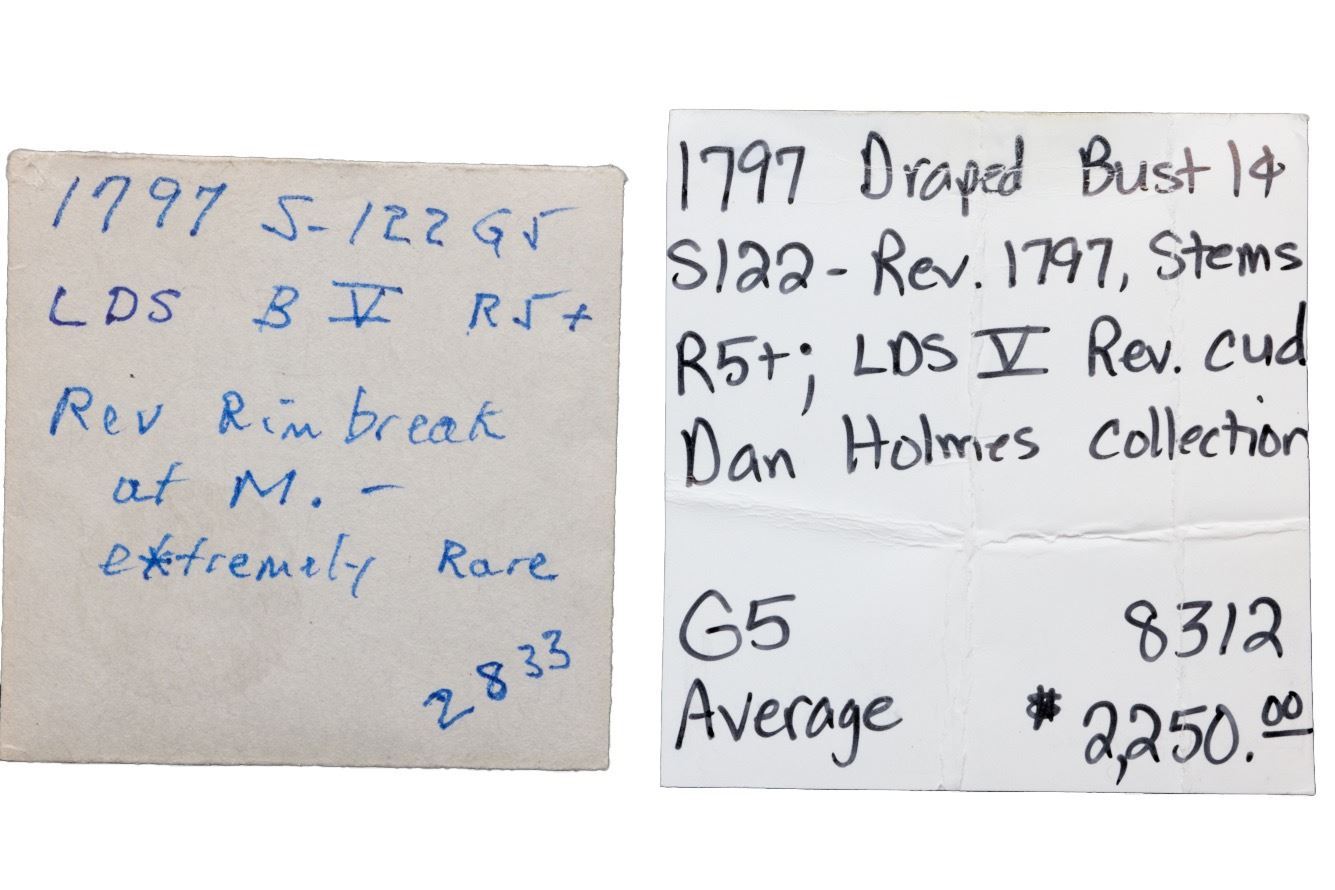 1797 S-122 G5
LDS B V R5+
Rev Rim break
at M. -
extremely Rare
2833
1797 Draped Bust 1¢
S122 - Rev. 1797, Stems
R5+; LDS V Rev. cud
Dan Holmes collection
G5 8312
Average $2,250.00